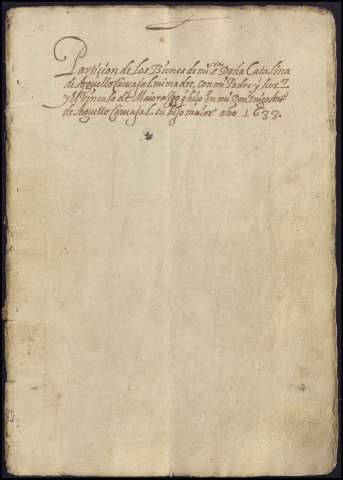 Particion de los Bienes de mi sra Doña Catalina
de Arguello Carvajal mi madre, con mi Padre y
y El Vinculo de Maiorasgo q hiço En mi Don Antº
de Arguello Carvajal su hijo maior año 1633.